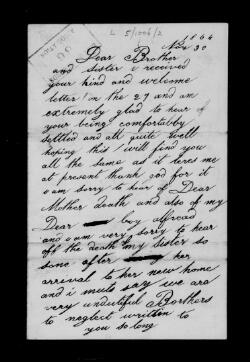 L 5/1006/2
1864
Nov 30
Dear Brother
and Sister i received
your kind and welcome
letter on the 27 and am
extremely glad to hear of
your being comfortably
settled and all quite well
hoping this will find you
all the same as it leves me
at present thank god for it
i am sorry to hear of Dear
Mother death and also of my
Dear boy alfread
and am very sorry to hear
off the death my sister so
sone after her
arrival to her new home
and i must say we are
very undutiful Borthers
to neglect written to
you so long